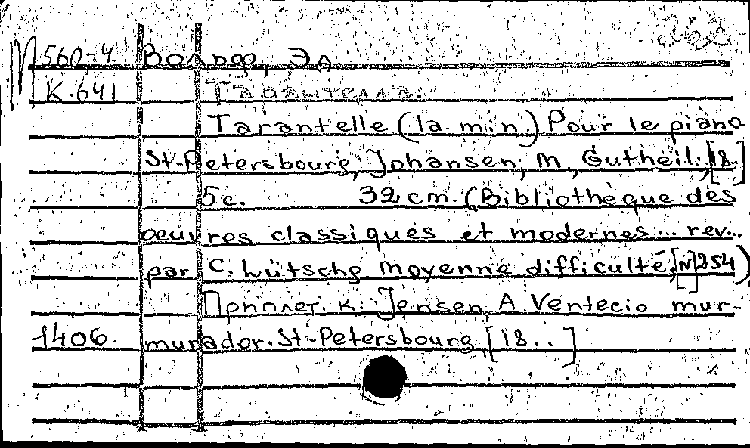 М 560-4 Вольф, Эд
К.641 Тарантелла.
Tarantelle (la min.) Pour le piano
St-Petersbourg, Johansen, M, Gutheil. [18.]
5c. 32 cm. (Bibliotheque des
oeuvres classiques et modernes... rev..
par C. Lütschg moyenne difficulté, [N]254)
Приплет. к. Jensen, A Ventecio mur-
1406. murador. St-Petersbourg, [18..]